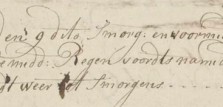 den 9 dito, Smorg: en voormi
emidd: Regen voords namid
gt weer tot Smorgens